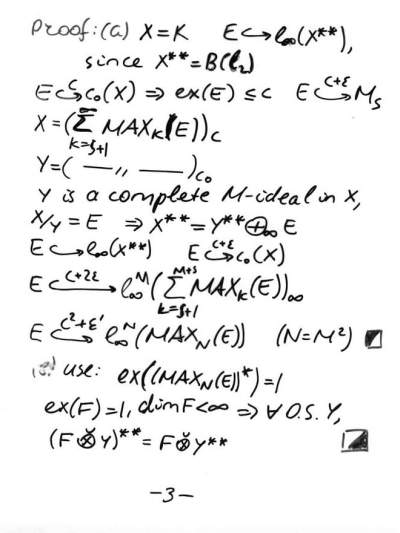 Proof: (a) X = K E ↪ ℓ∞(X**),
since X** = B(ℓ₂)
E ↪^C c₀(X) ⇒ ex(E) ≤ c E ↪^{C+ε} M_S
X = (∑_{k=S+1}^∞ MAX_k(E))_C
Y = ( — ,, — )_{c₀}
Y is a complete M-ideal in X,
X/Y = E ⇒ X** = Y** ⊕∞ E
E ↪ ℓ∞(X**) E ↪^{C+ε} c₀(X)
E ↪^{C+2ε} ℓ∞^M(∑_{k=S+1}^{M+S} MAX_k(E))∞
E ↪^{C²+ε'} ℓ∞^N(MAX_N(E)) (N=M²)
use: ex((MAX_N(E))*) = 1
ex(F) = 1, dim F < ∞ ⇒ ∀ O.S. Y,
(F ⊗̌ Y)** = F ⊗̌ Y**
-3-